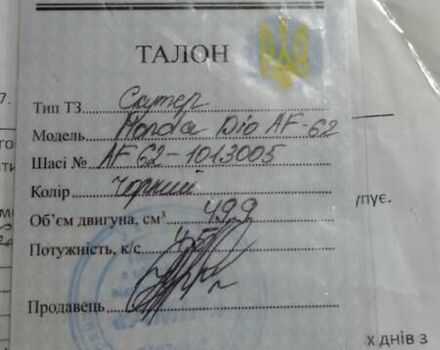 ТАЛОН
7.
Тип ТЗ Скутер
Модель Honda Dio AF-62
Шасі № AF62-1013005
Колір Чорний
упує.
Об'єм двигуна, см³ 49.9
Потужність, к/с
Продавець
х днів з